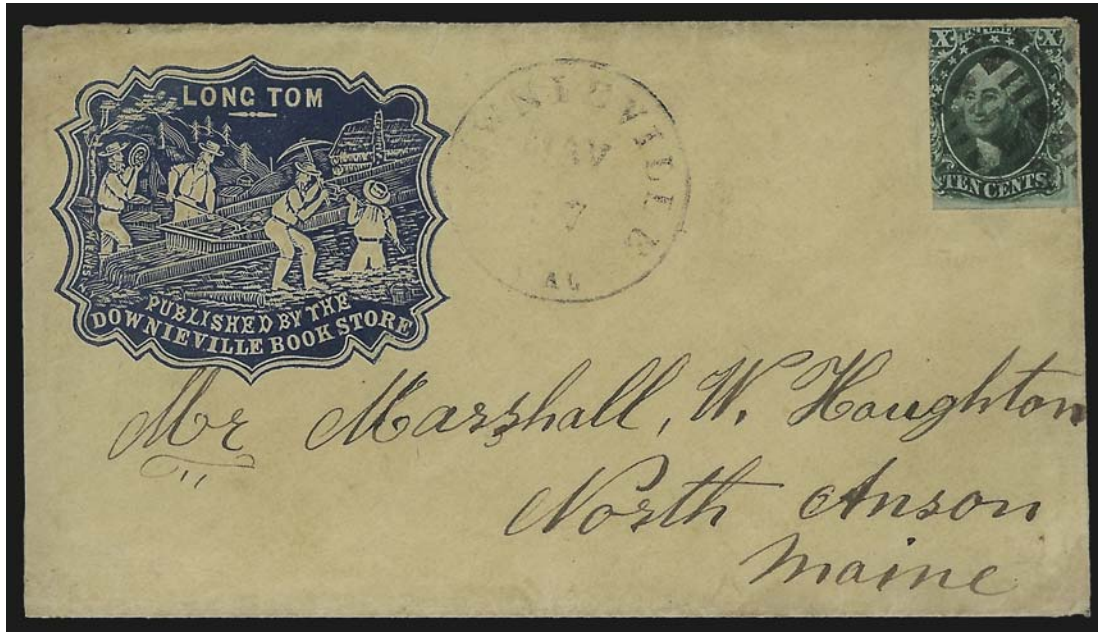 LONG TOM
PUBLISHED BY THE
DOWNIEVILLE BOOK STORE
DOWNIEVILLE
CAL
X X
TEN CENTS
Mr Marshall, W. Houghton
North Anson
Maine